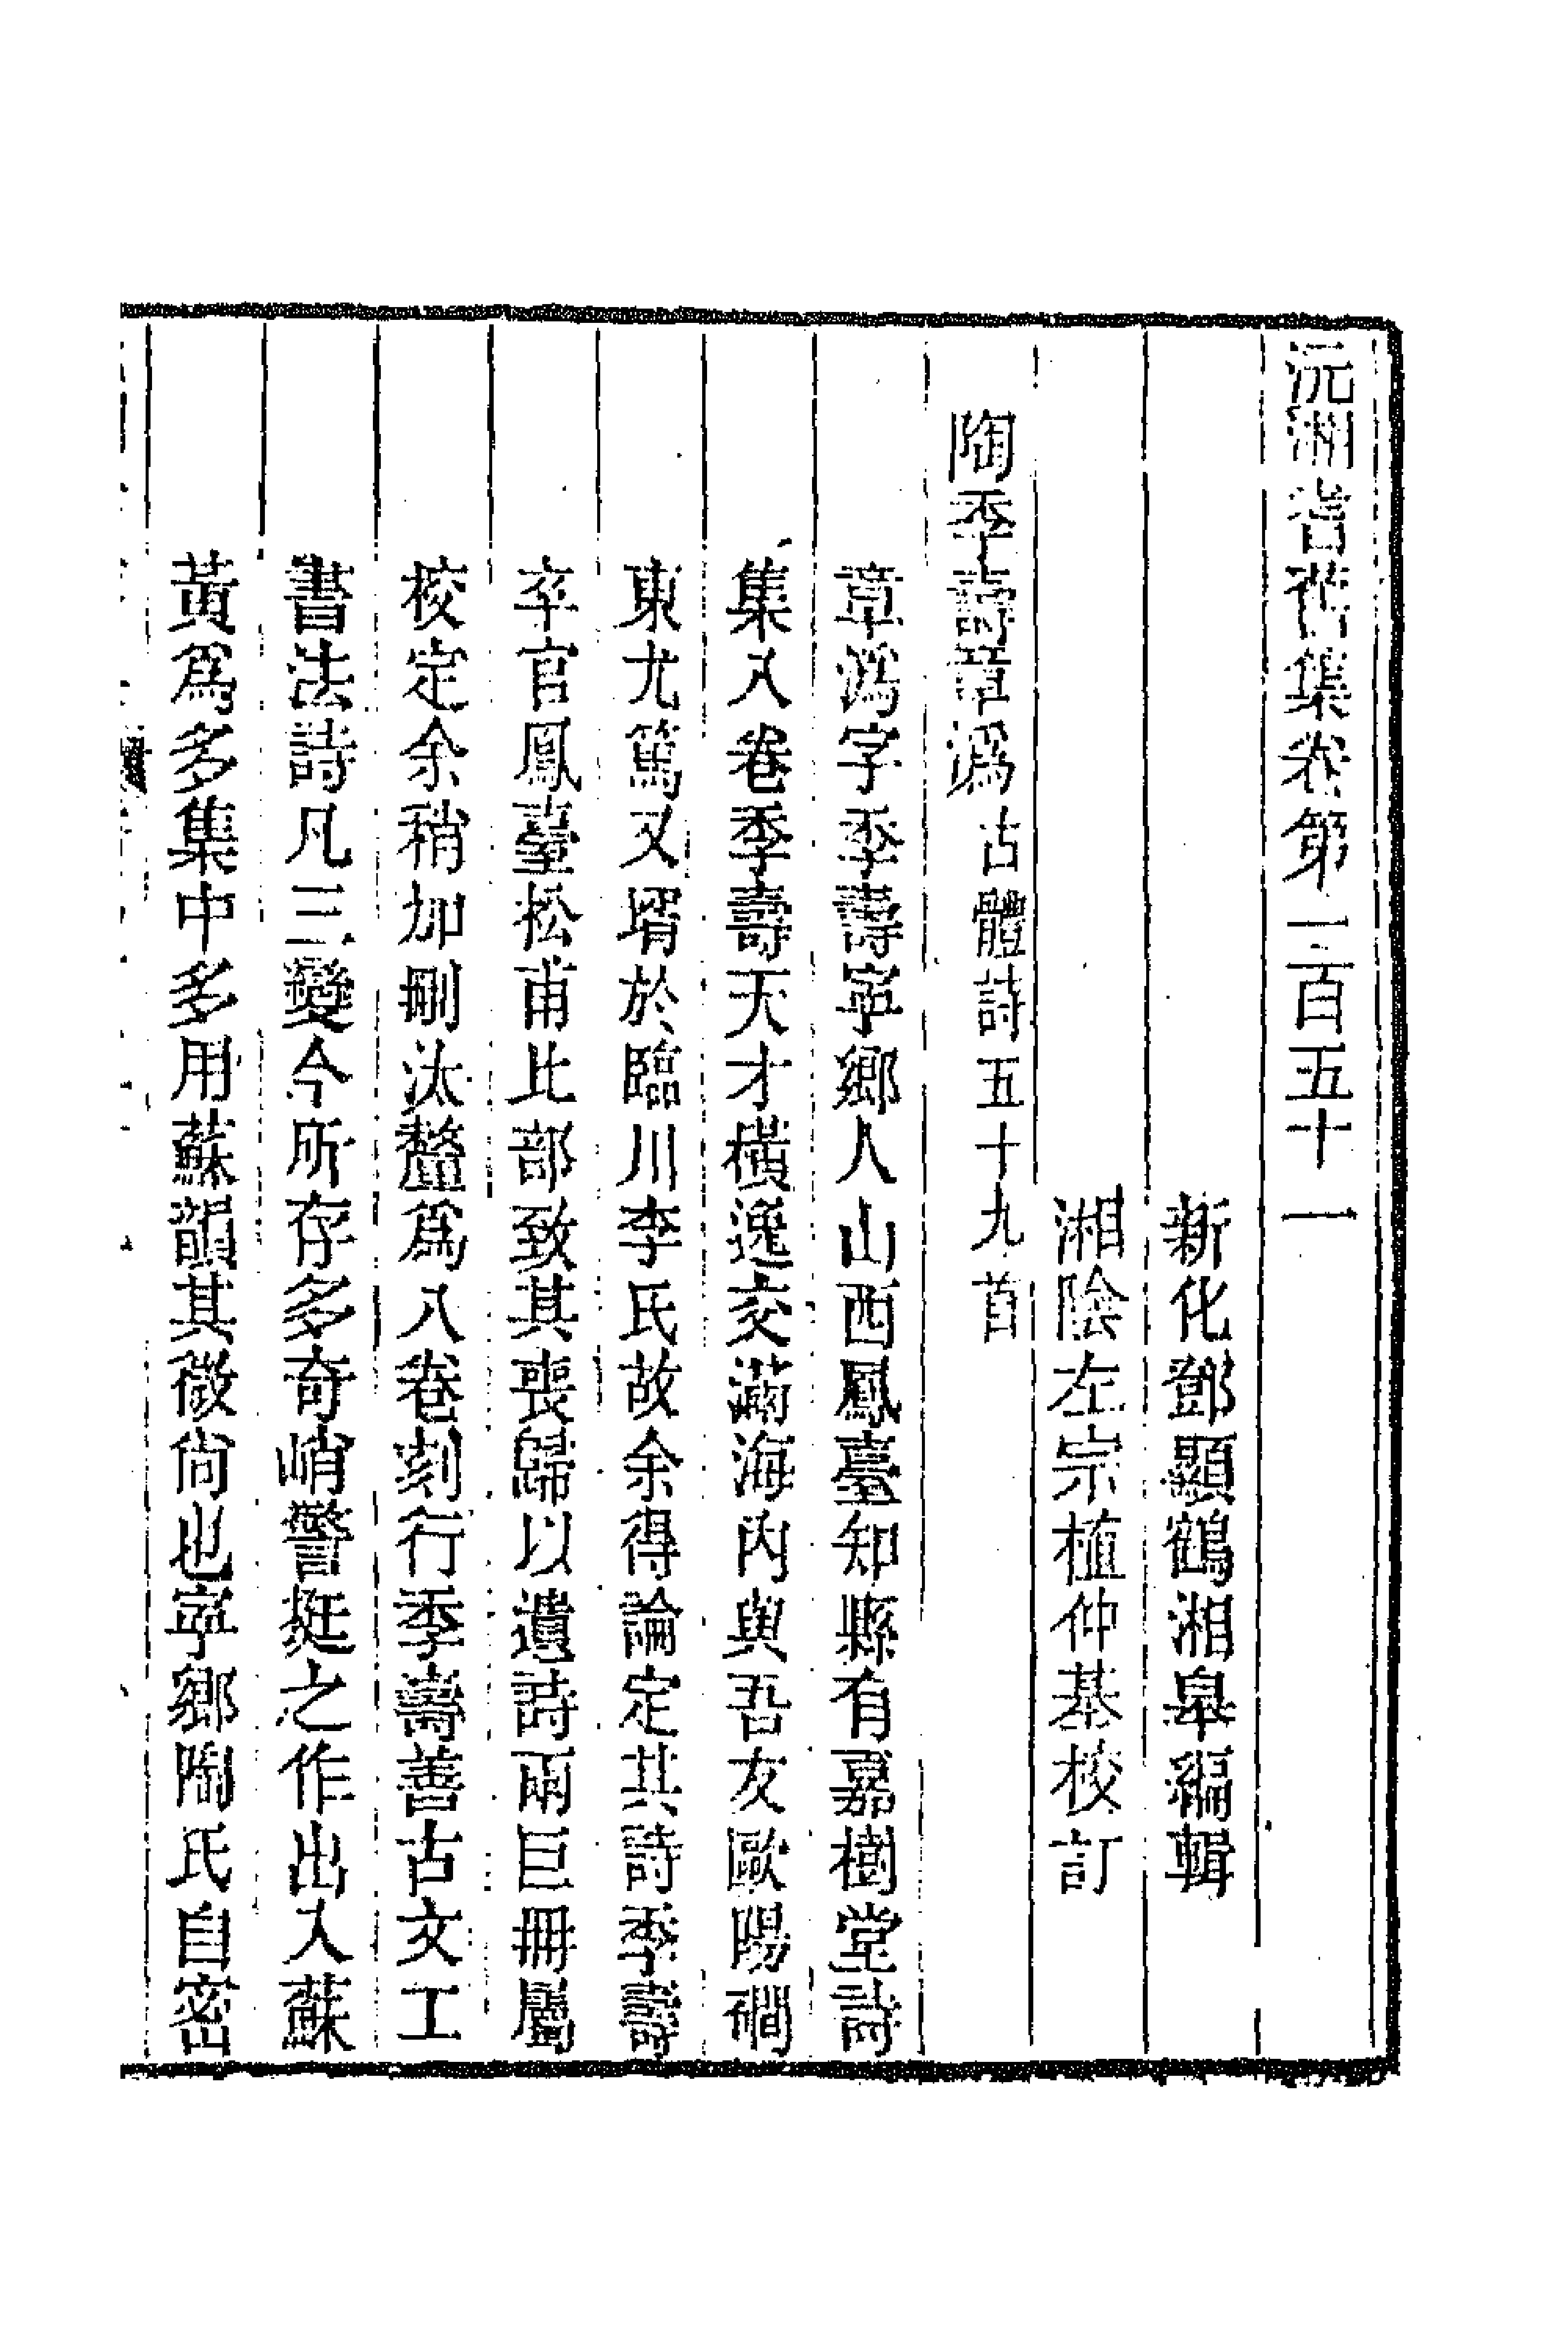 沅湘耆舊集卷第一百五十一
新化鄧顯鶴湘皋編輯
湘陰左宗植仲基校訂
陶季壽章溈古體詩五十九首
章溈字季壽寧鄉人山西鳳臺知縣有嘉樹堂詩
集八卷季壽天才橫逸交滿海內與吾友歐陽磵
東尤篤又壻於臨川李氏故余得論定其詩季壽
卒官鳳臺松甫比部致其喪歸以遺詩兩巨冊屬
校定余稍加刪汰釐爲八卷刻行季壽善古文工
書法詩凡三變今所存多奇峭警挺之作出入蘇
黃爲多集中多用蘇韻其微尙也寧鄉陶氏自密